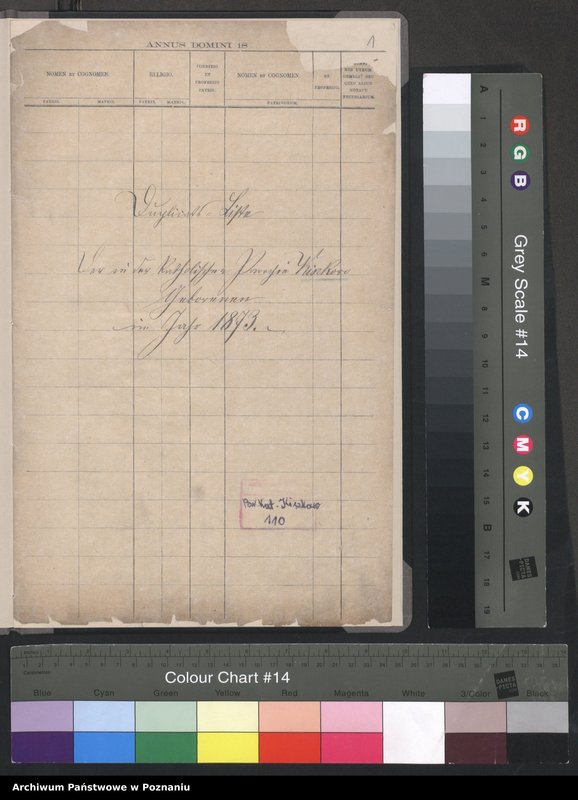 1
ANNUS DOMINI 18
NOMEN ET COGNOMEN.
RELIGIO.
CONDITIO ET PROFESSIO PATRIS.
NOMEN ET COGNOMEN.
ET PROFESSIO.
NEC UTRUM
NECESSARIUM.
PATRIS. MATRIS. PATRIS. MATRIS. PATRINORUM.
Duplicats-Liste
Der in der katholischen Parochie Kiszkowo
Geborenen
im Jahr 1873.
Par. Kat. Kiszkowo
110
A 1 2 3 4 5 6 M 8 9 10 11 12 13 14 15 B 17 18 19
R G B
Grey Scale #14
C M Y K
DANES-PICTA
Colour Chart #14
Blue Cyan Green Yellow Red Magenta White 3/Color Black
DANES-PICTA
Archiwum Państwowe w Poznaniu